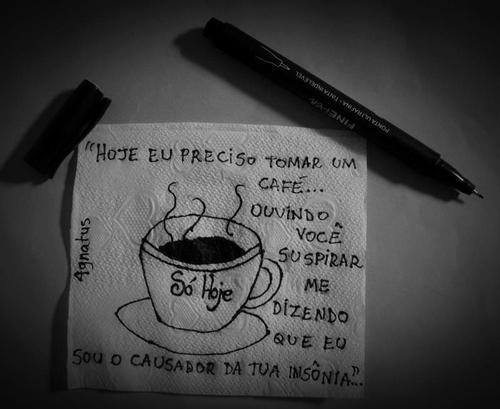 "HOJE EU PRECISO TOMAR UM
CAFÉ...
OUVINDO
VOCÊ
SUSPIRAR
ME
DIZENDO
QUE EU
SOU O CAUSADOR DA TUA INSÔNIA"...
Só Hoje
Agnatus
PONTA ULTRAFINA · TINTA INDELÉVEL